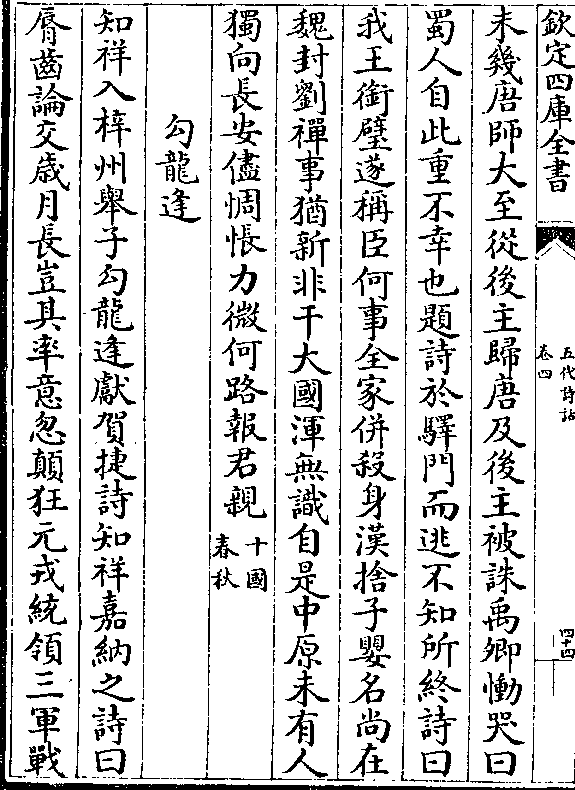 欽定四庫全書
五代詩話
卷四
四十四
未幾唐師大至從後主歸唐及後主被誅禹卿慟哭曰
蜀人自此重不幸也題詩於驛門而逃不知所終詩曰
我王銜璧遂稱臣何事全家併殺身漢捨子嬰名尚在
魏封劉禪事猶新非干大國渾無識自是中原未有人
獨向長安儘惆悵力微何路報君親十國
春秋
勾龍逢
知祥入梓州舉子勾龍逢獻賀捷詩知祥嘉納之詩曰
脣齒論交歲月長豈其率意忽顛狂元戎統領三軍戰